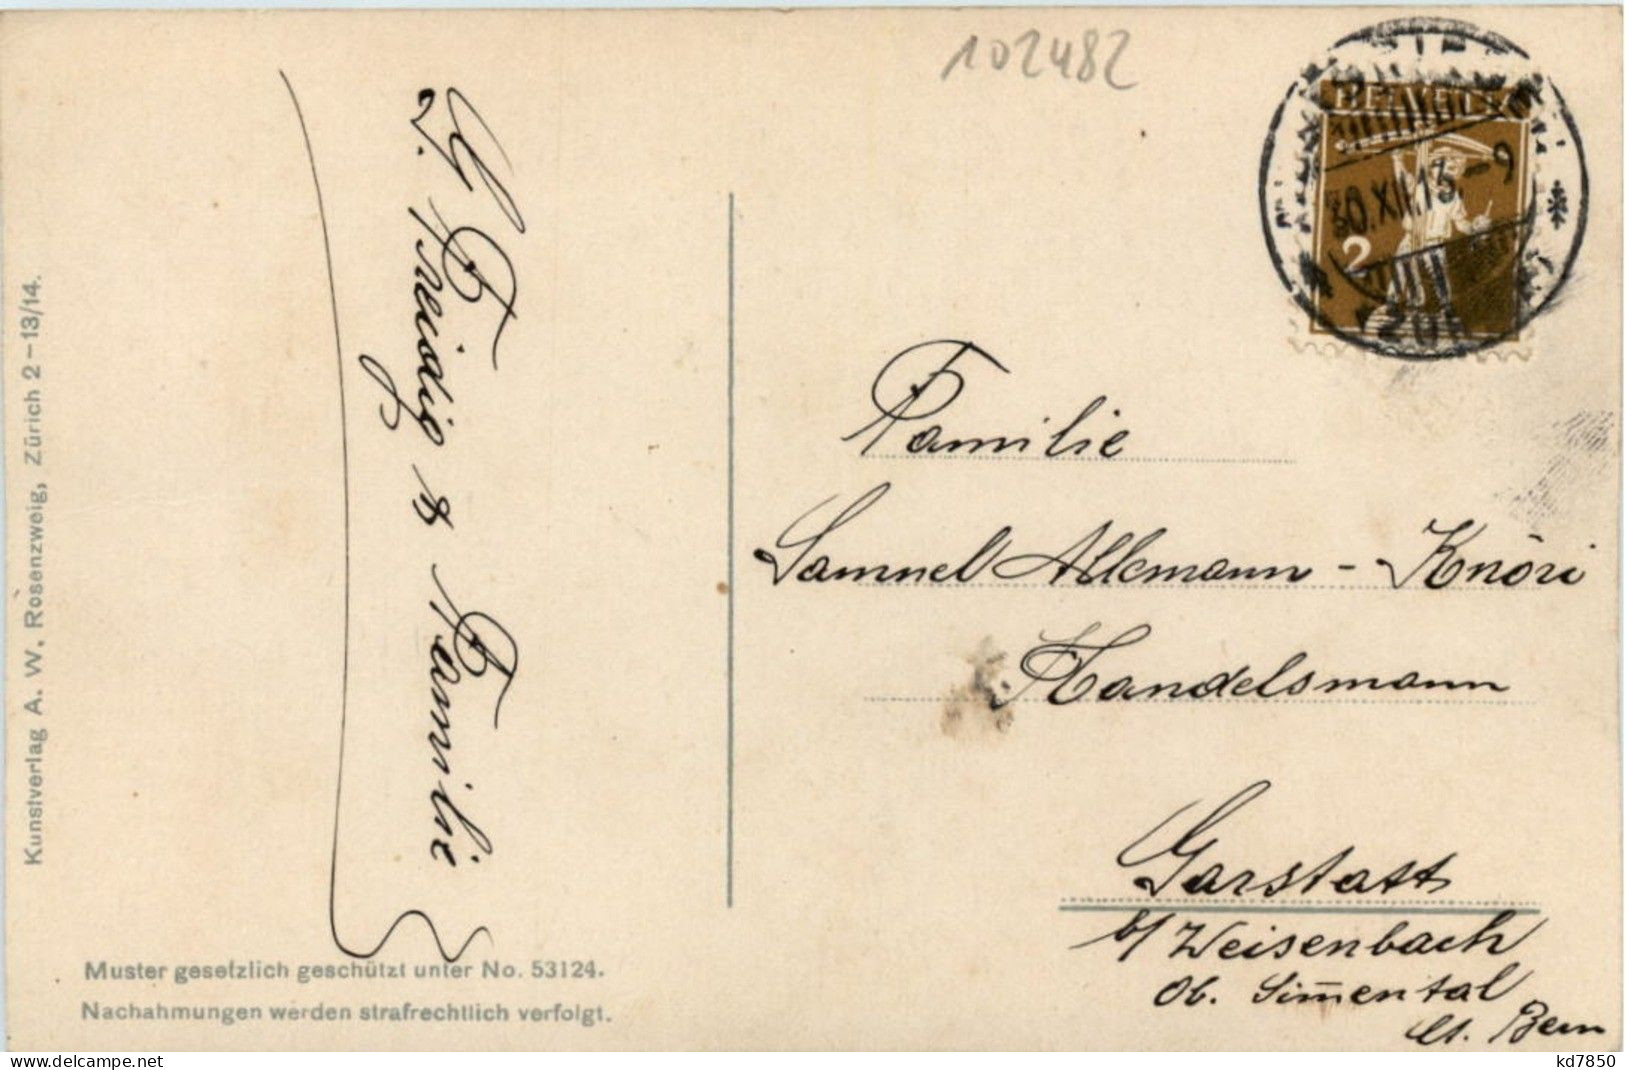 102482
HELVETIA
30.XII.13.-9
2
Familie
Samuel Allemann - Knöri
Handelsmann
Garstatt
b/ Weisenbach
Ob. Sim̅ental
Ct. Bern
& Familie
Kunstverlag A. W. Rosenzweig, Zürich 2-13/14.
Muster gesetzlich geschützt unter No. 53124.
Nachahmungen werden strafrechtlich verfolgt.
www.delcampe.net
kd7850